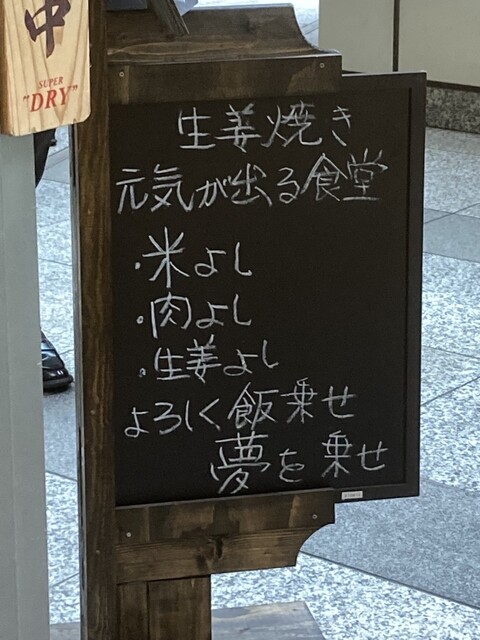 中
SUPER
"DRY"
生姜焼き
元気が出る食堂
・米よし
・肉よし
・生姜よし
よろしく飯乗せ
夢を乗せ